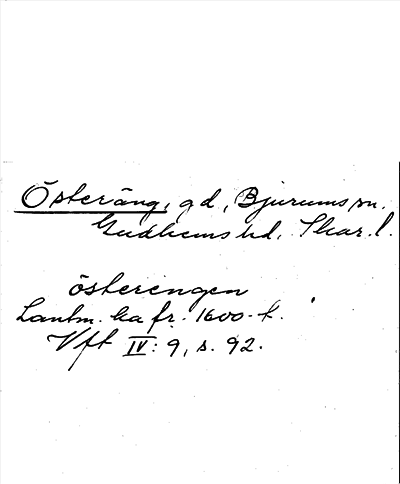 Österäng, gd, Bjurums sn.
Gudhems hd. Skar. l.
österengen
Lantm. ka fr. 1600-t.
Vft IV: 9, s. 92.